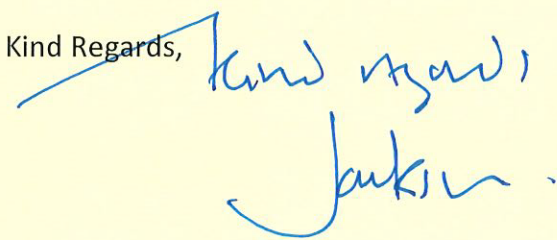 Kind Regards, Kind regards
Jackson.